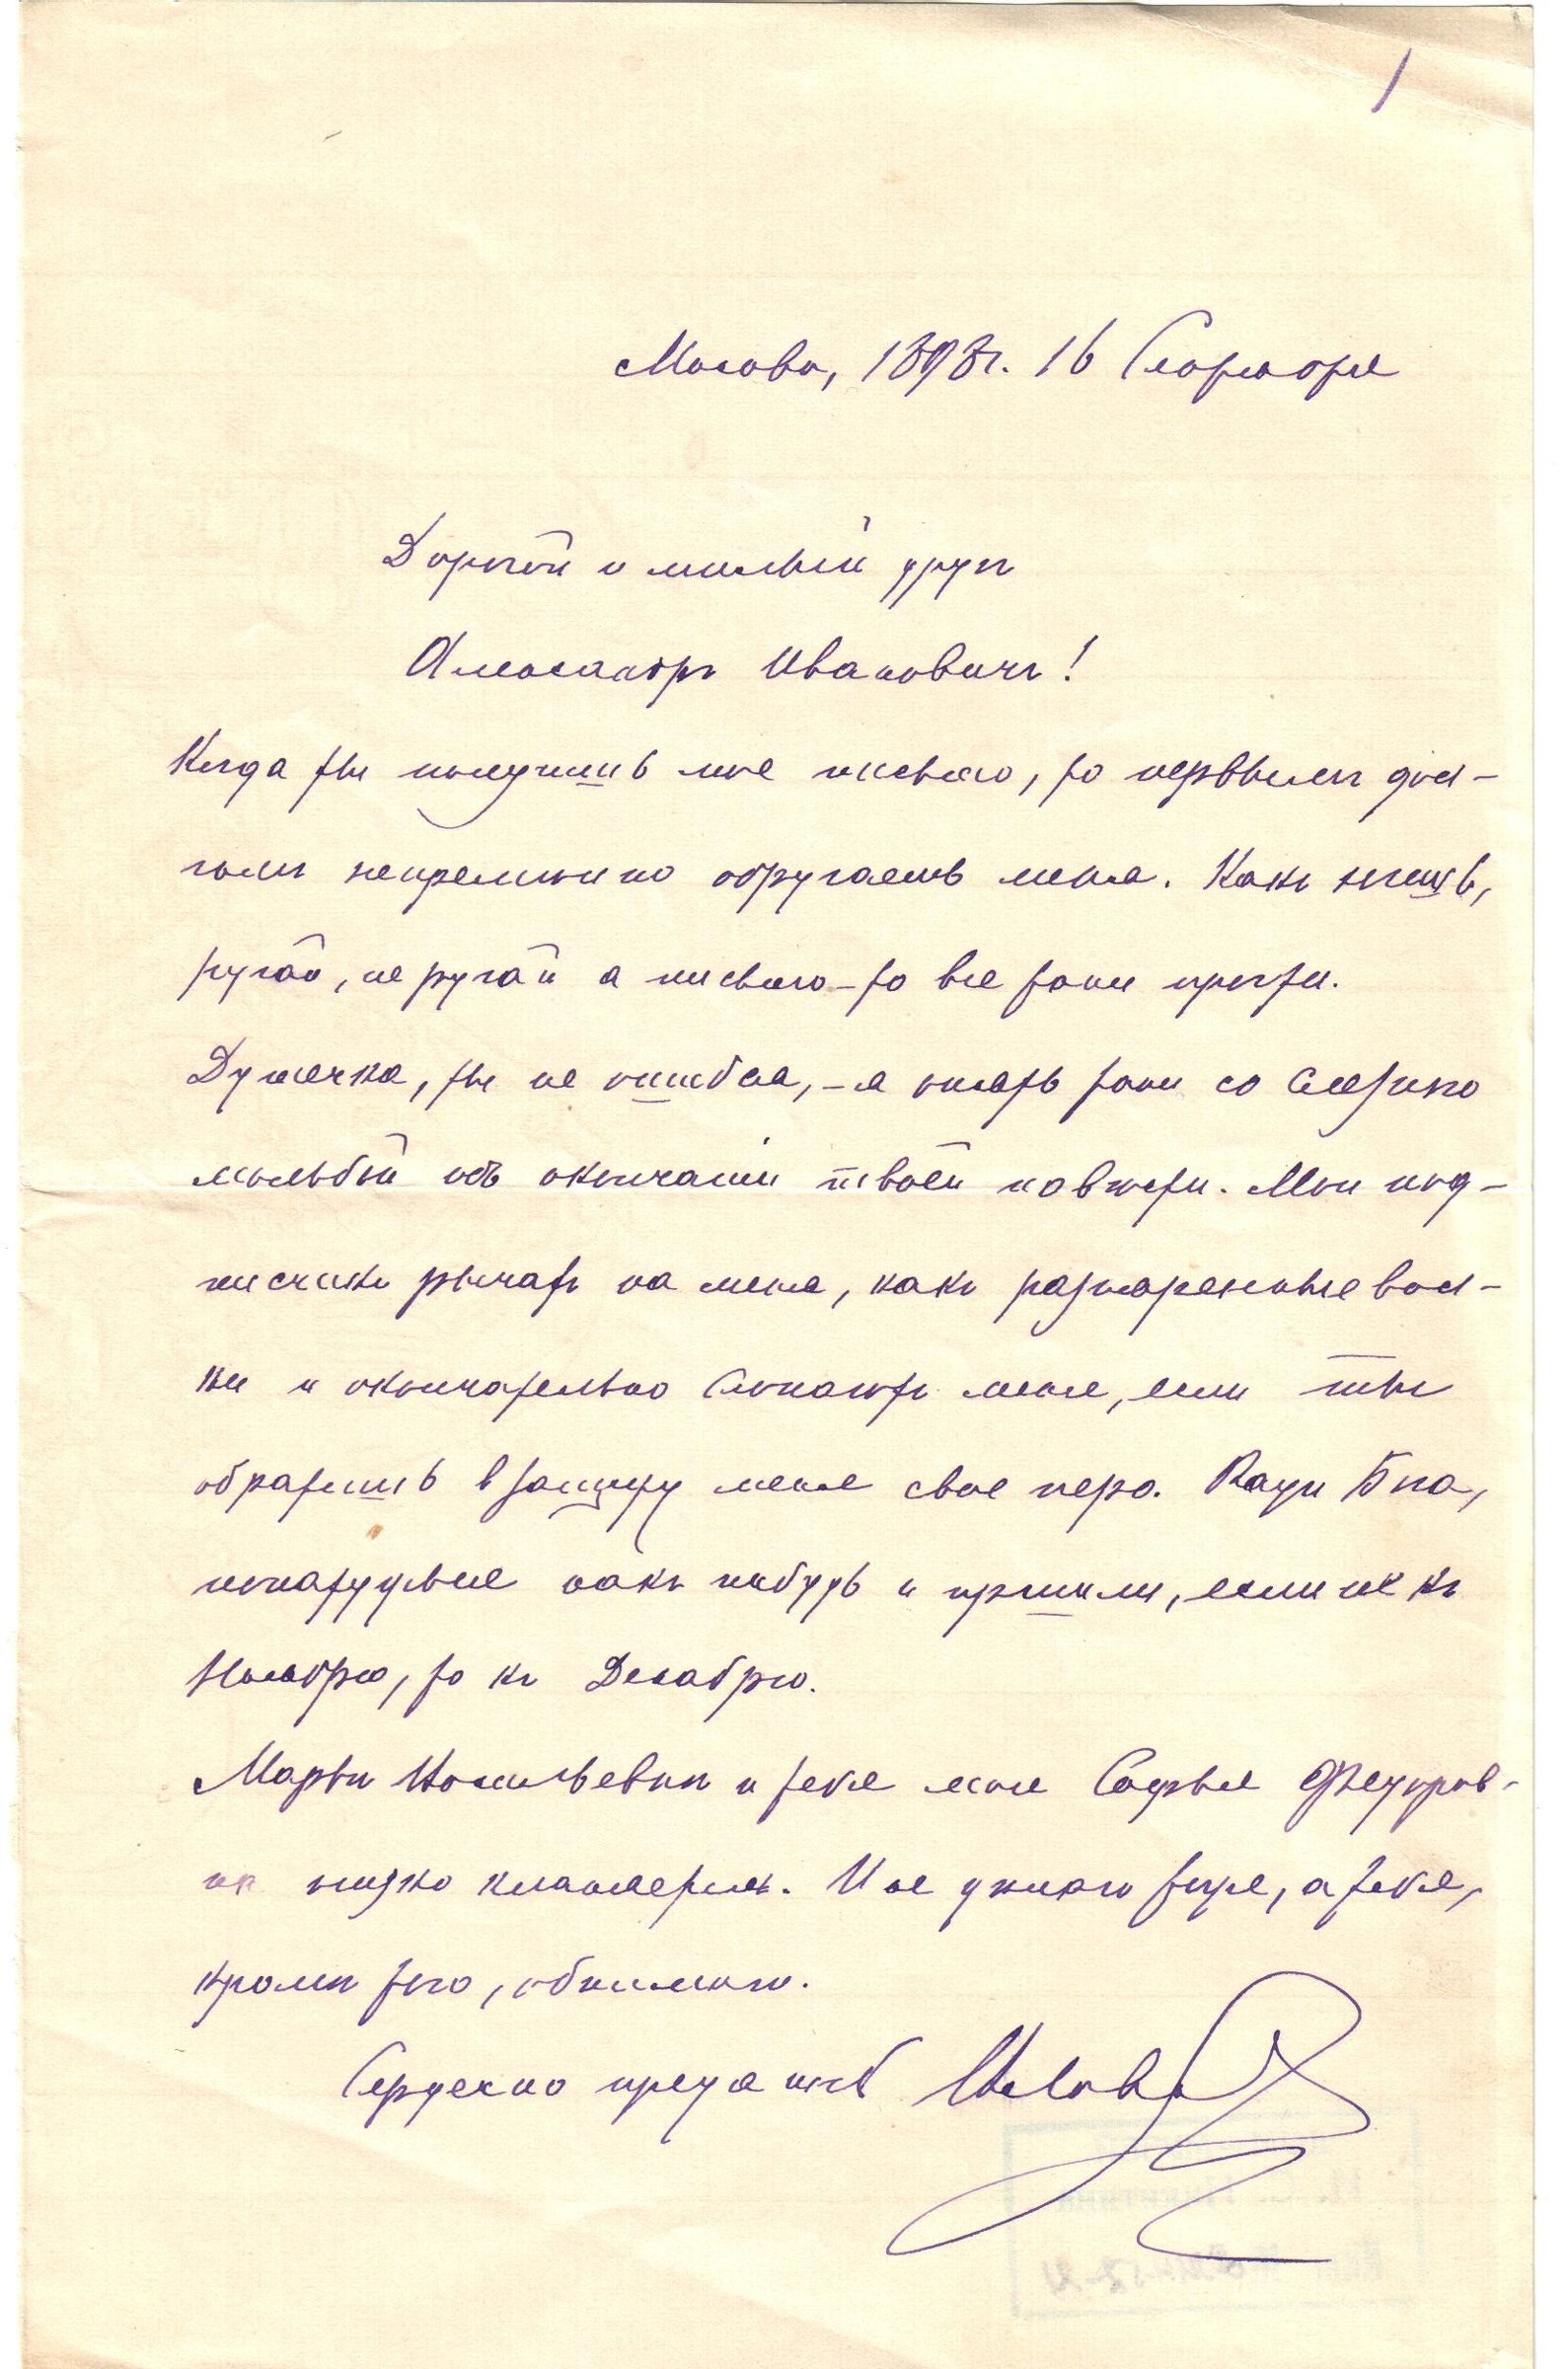 Москва, 1898г. 16 Сентября
Дорогой и милый другъ
Александръ Ивановичъ!
Когда ты получишь мое письмо, то первымъ дол-
гомъ непремѣнно обругаешь меня. Какъ хочешь,
ругай, не ругай а письмо-то все таки прочти.
Душечка, ты не ошибся, - я опять таки со слезною
мольбой объ окончаніи твоей повѣсти. Мои под-
писчики рычатъ на меня, какъ разъяренные вол-
ки и окончательно слопаютъ меня, если ты
обратишь в защиту меня свое перо. Ради Бга,
понатужься какъ нибудь и пришли, если не къ
Ноябрю, то къ Декабрю.
Марьѣ Васильевнѣ и тебѣ моя Софья Федоров-
на низко кланяется. И я дѣлаю тоже, а тебя,
кромѣ того, обнимаю.
Сердечно преданный